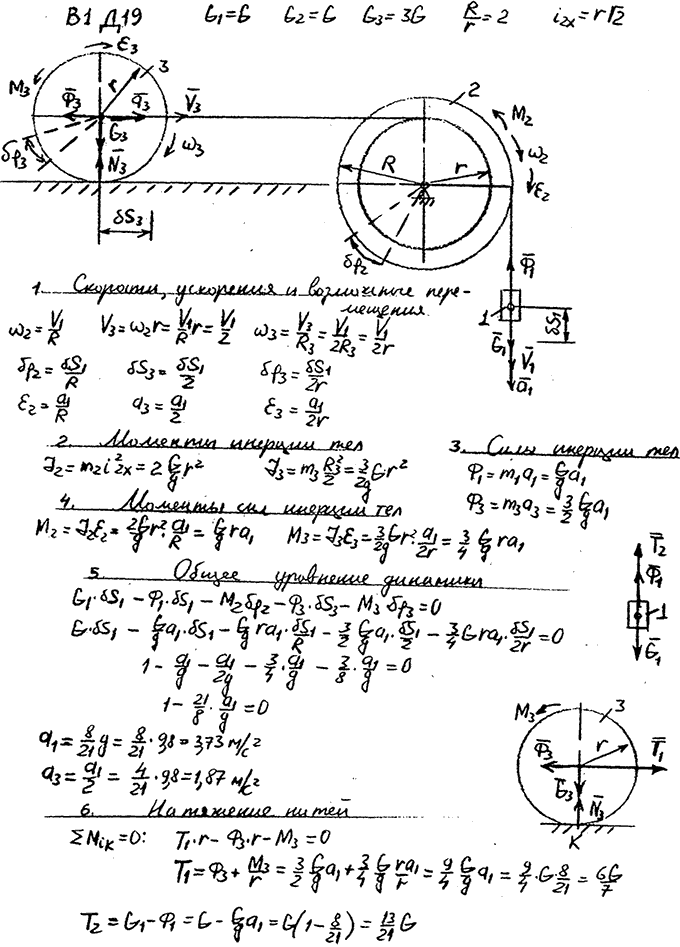 В1 Д19 G₁=G G₂=G G₃=3G R/r=2 i₂ₓ=r√2
ε₃
3
M₃
r
Φ̄₃ ā₃ V̄₃
G₃
N̄₃
ω₃
δφ₃
δS₃
2
M₂
ω₂
ε₂
R r
δφ₂
Φ̄₁
1
δS₁
Ḡ₁
V̄₁
ā₁
1. Скорости, ускорения и возможные пере-
мещения.
ω₂=V₁/R V₃=ω₂r=V₁/R r=V₁/2 ω₃=V₃/R₃=V₁/2R₃=V₁/2r
δφ₂=δS₁/R δS₃=δS₁/2 δφ₃=δS₁/2r
ε₂=a₁/R a₃=a₁/2 ε₃=a₁/2r
2. Моменты инерции тел
J₂=m₂i²₂x=2 G/g r² J₃=m₃ R₃²/2=3/2g G·r²
3. Силы инерции тел
Φ₁=m₁a₁=G/g a₁
Φ₃=m₃a₃=3/2 G/g a₁
4. Моменты сил инерции тел
M₂=J₂ε₂=2G/g r²·a₁/R=G/g ra₁ M₃=J₃ε₃=3/2g Gr²·a₁/2r=3/4 G/g ra₁
5. Общее уровнение динамики
G₁·δS₁-Φ₁·δS₁-M₂δφ₂-Φ₃·δS₃-M₃δφ₃=0
G·δS₁-G/g a₁·δS₁-G/g ra₁·δS₁/R-3/2 G/g a₁·δS₁/2-3/4 G ra₁·δS₁/2r=0
1-a₁/g-a₁/2g-3/4·a₁/g-3/8·a₁/g=0
1-21/8·a₁/g=0
a₁=8/21 g=8/21·9,8=3,73 м/с²
a₃=a₁/2=4/21·9,8=1,87 м/с²
T̄₂
Φ̄₁
1
Ḡ₁
M₃
3
r
Φ̄₃ T̄₁
G₃
N̄₃
K
6. Натяжение нитей
ΣMᵢₖ=0: T₁·r-Φ₃·r-M₃=0
T₁=Φ₃+M₃/r=3/2 G/g a₁+3/4 G/g ra₁/r=9/4 G/g a₁=9/4·G·8/21=6G/7
T₂=G₁-Φ₁=G-G/g a₁=G(1-8/21)=13/21 G